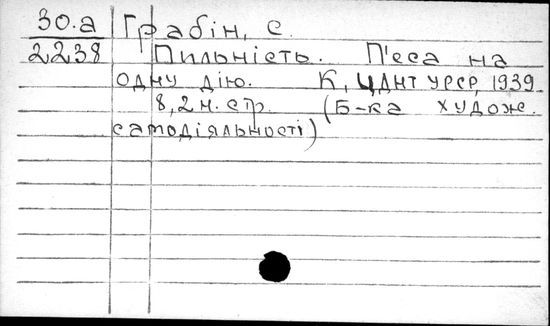 30.а Грабін, С.
2238 Пильність. П'єса на
одну дію. К, ЦДНТ УРСР, 1939
8,2 н. стр. (Б-ка худож.
самодіяльності)